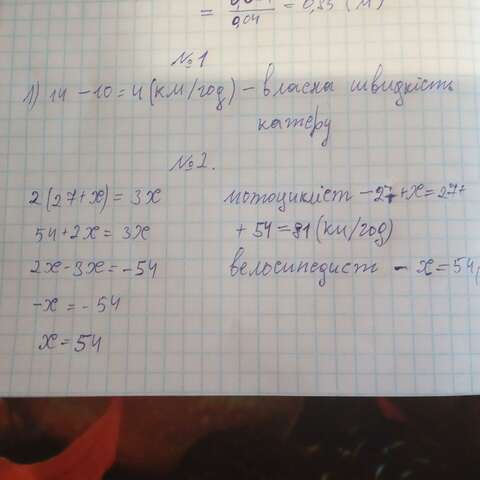 = 0,04 = 0,85 (м)
№1
1) 14 - 10 = 4 (км/год) - власна швидкість
катеру
№2.
2(27+x) = 3x
54+2x = 3x
2x-3x = -54
-x = -54
x = 54
мотоцикліст - 27+x = 27+
+ 54 = 81 (км/год)
велосипедист - x = 54